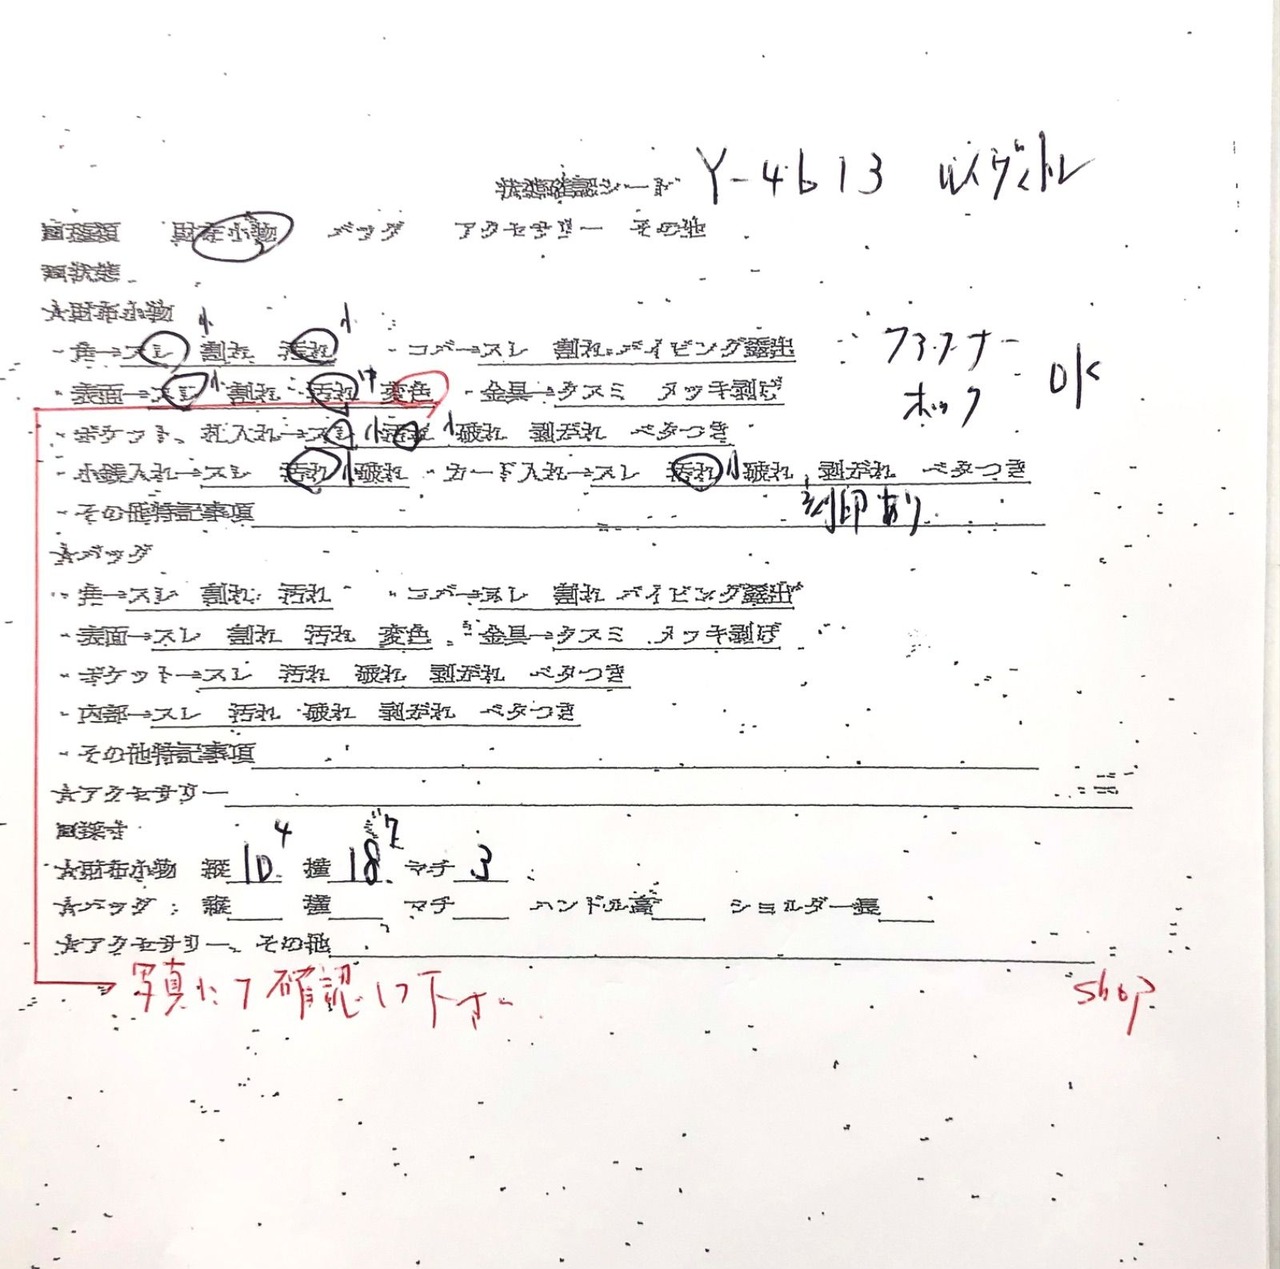 状態確認シード Y-4613 ルイヴィトン
□種類 財布小物 バッグ アクセサリー その他
□状態
☆財布小物
・角→スレ 小 割れ 汚れ 小 ・コバ→スレ 割れ パイピング露出 ファスナー
・表面→スレ 小 割れ 汚れ 中 変色 ・金具→クスミ メッキ剥げ ホック OK
・ポケット、札入れ→スレ 小 汚れ 小 破れ 剥がれ ベタつき
・小銭入れ→スレ 汚れ 小 破れ ・カード入れ→スレ 汚れ 小 破れ 剥がれ ベタつき
・その他特記事項 刻印あり
☆バッグ
・角→スレ 割れ 汚れ ・コバ→スレ 割れ パイピング露出
・表面→スレ 割れ 汚れ 変色 ・金具→クスミ メッキ剥げ
・ポケット→スレ 汚れ 破れ 剥がれ ベタつき
・内部→スレ 汚れ 破れ 剥がれ ベタつき
・その他特記事項
☆アクセサリー
□採寸
☆財布小物 縦 10.4 横 18.7 マチ 3
☆バッグ: 縦 横 マチ ハンドル高 ショルダー長
☆アクセサリー、その他
写真にて確認して下さい shop